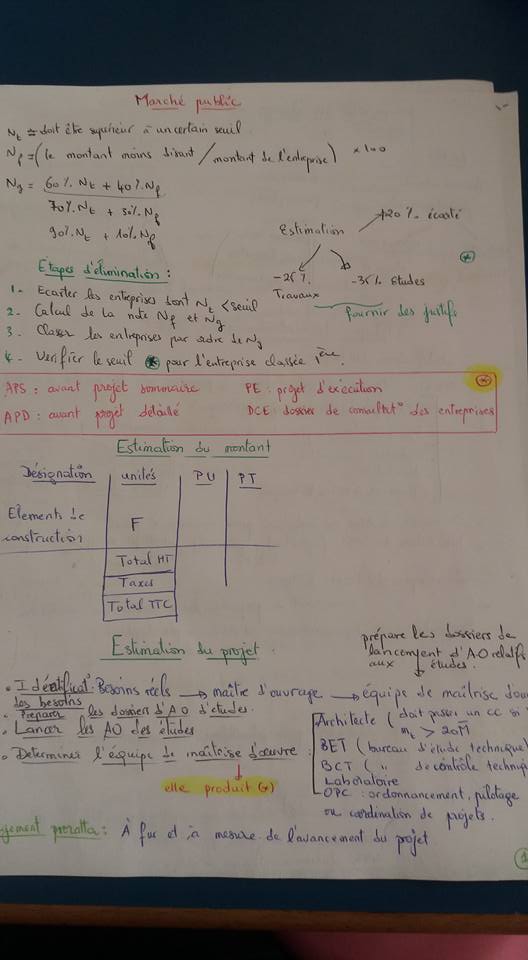 Marché public
Nt = doit être supérieur à un certain seuil.
Nf = (le montant moins disant / montant de l'entreprise) × 100
Ng = 60% Nt + 40% Nf
70% Nt + 30% Nf
90% Nt + 10% Nf
Estimation → +20% écarté
-25% Travaux
-35% études
fournir des justifs
Etapes d'élimination :
1- Ecarter les entreprises dont Nt < seuil
2- Calcul de la note Nf et Ng
3- Classer les entreprises par ordre de Ng
4- Vérifier le seuil * pour l'entreprise classée 1ère.
APS : avant projet sommaire PE : projet d'exécution
APD : avant projet détaillé DCE : dossier de consultat° des entreprises
Estimation du montant
Désignation unités PU PT
Elements de construction F
Total HT
Taxes
Total TTC
Estimation du projet :
prépare les dossiers de
lancement d'AO relatifs
aux études.
• Identificat° Besoins réels → maître d'ouvrage → équipe de maîtrise
des besoins
• Préparer les dossiers d'AO d'études.
• Lancer les AO des études
• Determiner l'équipe de maîtrise d'œuvre :
elle produit (*)
Architecte (doit passer un CC si
mt > 20M
BET (bureau d'étude technique)
BCT ( " de contrôle
Laboratoire
OPC : ordonnancement, pilotage
ou coordination de projets.
prorata : À fur et à mesure de l'avancement du projet
1